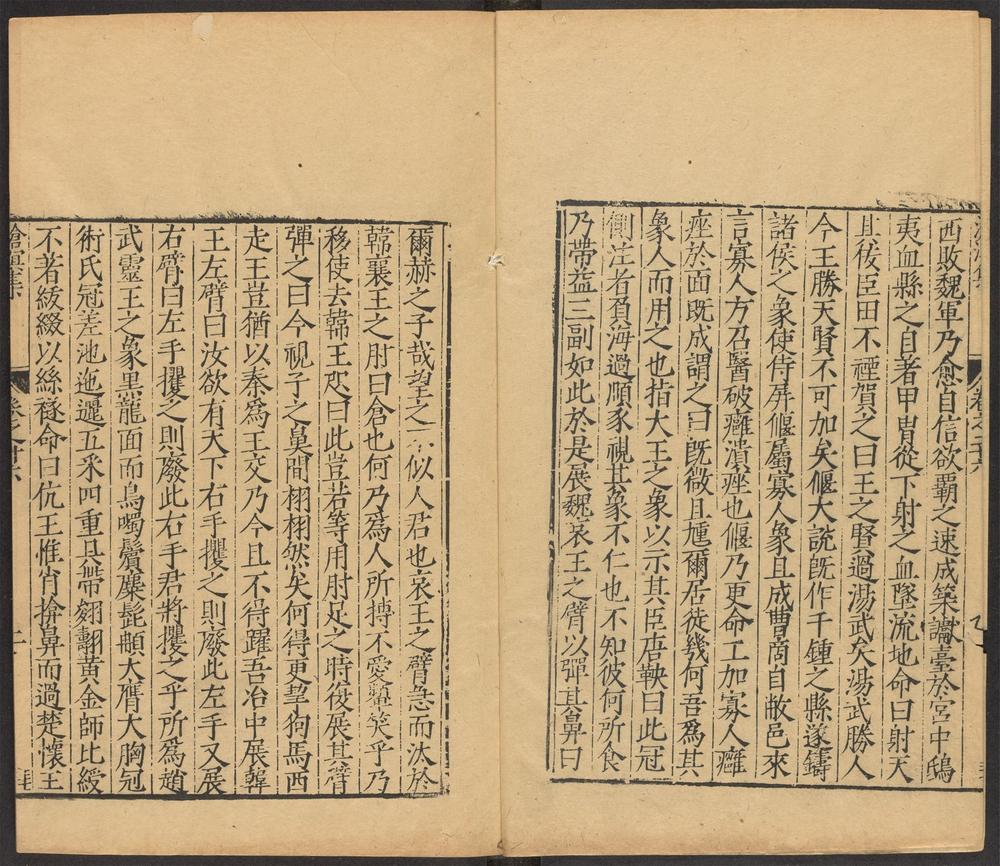 西敗魏軍乃愈自信欲覇之速成築讞臺於宮中鴟
夷血縣之自著甲冑從下射之血墜流地命曰射天
且秡臣田不禋賀之曰王之賢過湯武矣湯武勝人
今王勝天賢不可加矣偃大說旣作千鍾之縣遂鑄
諸侯之象使侍屏偃屬寡人象且成曹商自敝邑來
言寡人方召醫破癰潰痤也偃乃更命工加寡人癰
痤於面旣成謂之曰旣微且尰爾居徒幾何吾爲其
象人而用之也指大王之象以示其臣唐鞅曰此冠
側注者負海過順豕視其象不仁也不知彼何所食
乃帶益三副如此於是展魏哀王之臂以彈其鼻曰
爾赫之子哉望之不似人君也哀王之臂急而汰於
韓襄王之肘曰倉也何乃爲人所搏不愛顰笑乎乃
移使去韓王忿曰此豈若等用肘足之時復展其臂
彈之曰今視子之鼻間栩栩然矣何得更挈狗馬西
走王豈猶以秦爲王交乃今且不得躍吾冶中展韓
王左臂曰汝欲有天下右手攫之則廢此左手又展
右臂曰左手攫之則廢此右手君將攫之乎所爲趙
武靈王之象黒龍面而鳥噣鬢麋髭䫇大膺大胸冠
術氏冠差池迤邐五釆四重具帶翩翿黃金師比綬
不著紱綴以絲襚命曰伉王惟肖揜鼻而過楚懷王
卷之十六
二